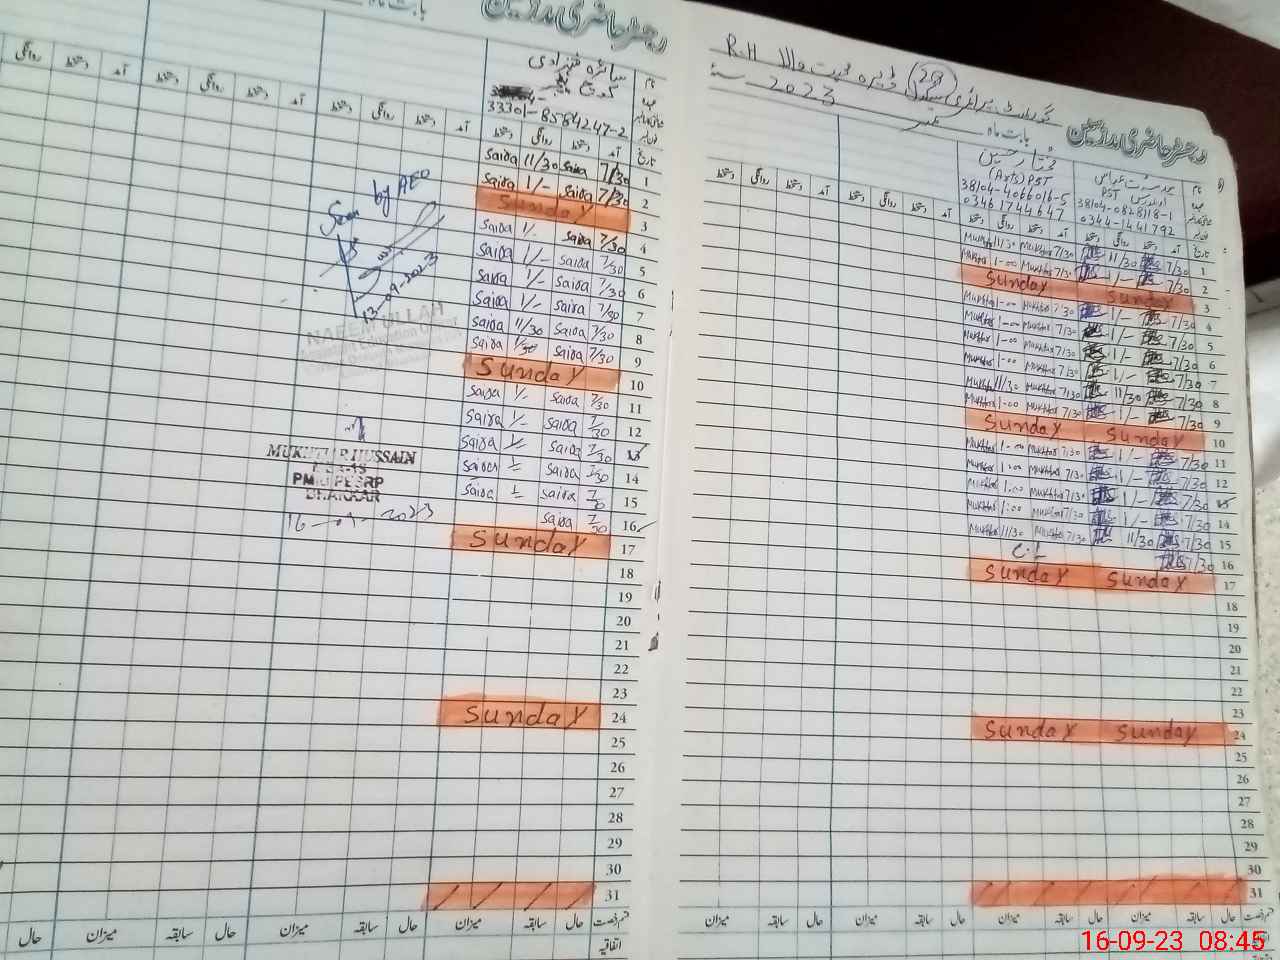 رجسٹر حاضری مدرسین
بابت ماہ
سائرہ شہزادی
33301-8584247-2
نام
عہدہ
تاریخ
آمد دستخط روانگی دستخط
1 7/30 Saira 11/30 Saira
2 7/30 Saira 1/- Saira
3 Sunday
4 7/30 Saira 1/- Saira
5 7/30 Saira 1/- Saira
6 7/30 Saira 1/- Saira
7 7/30 Saira 1/- Saira
8 7/30 Saira 11/30 Saira
9 7/30 Saira Saira
10 Sunday
11 7/30 Saira 1/- Saira
12 7/30 Saira 1/- Saira
13 7/30 Saira 1/- Saira
14 7/30 Saira 1/- Saira
15 7/30 Saira 1/- Saira
16 7/30 Saira
17 Sunday
18
19
20
21
22
23
24 Sunday
25
26
27
28
29
30
31
Seen by AEO
13-09-2023
NAEEM ULLAH
MUKHTAR HUSSAIN
PMIU PESRP
BHAKKAR
16-09-2023
حال سابقہ میزان حال سابقہ میزان حال سابقہ میزان
اتفاقیہ
گورنمنٹ پرائمری سکول ڈیرہ محبت والا R.H
رجسٹر حاضری مدرسین
بابت ماہ ستمبر سنہ 2023
نام
عہدہ
PST
38104-0828118-1
0344-1441792
مختار حسین
(Arts) PST
38104-4066016-5
03461744647
تاریخ
آمد دستخط روانگی دستخط
1 7/30 11/30 7/30 Mukhtar 11/30 Mukhtar
2 7/30 1/- 7/30 Mukhtar 1-00 Mukhtar
3 Sunday Sunday
4 7/30 1/- 7/30 Mukhtar 1-00 Mukhtar
5 7/30 1/- 7/30 Mukhtar 1-00 Mukhtar
6 7/30 1/- 7/30 Mukhtar 1-00 Mukhtar
7 7/30 1/- 7/30 Mukhtar 1-00 Mukhtar
8 7/30 11/30 7/30 Mukhtar 11/30 Mukhtar
9 7/30 1/- 7/30 Mukhtar 1-00 Mukhtar
10 Sunday Sunday
11 7/30 1/- 7/30 Mukhtar 1-00 Mukhtar
12 7/30 1/- 7/30 Mukhtar 1:00 Mukhtar
13 7/30 1/- 7/30 Mukhtar 1:00 Mukhtar
14 7/30 1/- 7/30 Mukhtar 1:00 Mukhtar
15 7/30 11/30 7/30 Mukhtar 11/30 Mukhtar
16 7/30
17 Sunday Sunday
18
19
20
21
22
23
24 Sunday Sunday
25
26
27
28
29
30
31
حال سابقہ میزان حال سابقہ میزان حال سابقہ میزان
16-09-23 08:45